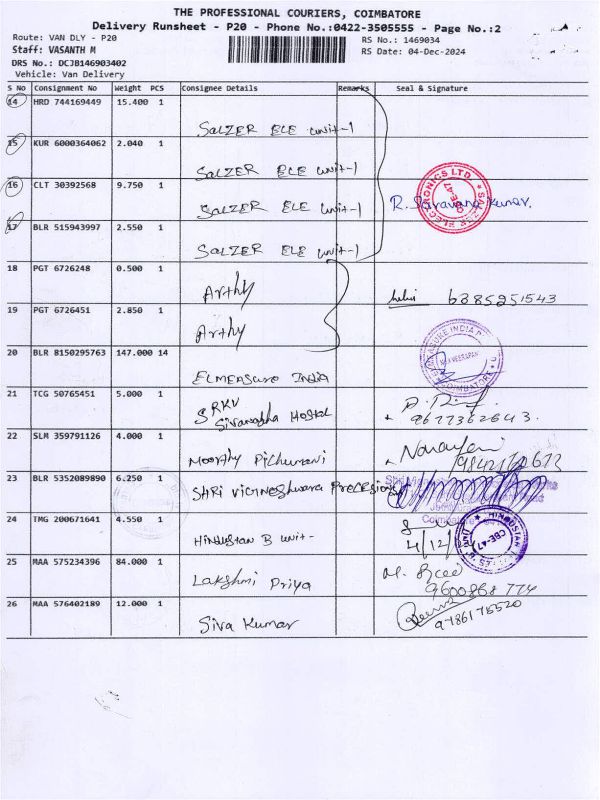 THE PROFESSIONAL COURIERS, COIMBATORE
Delivery Runsheet - P20 - Phone No.:0422-3505555 - Page No.:2
Route: VAN DLY - P20
RS No.: 1469034
Staff: VASANTH M
RS Date: 04-Dec-2024
DRS No.: DCJB146903402
Vehicle: Van Delivery
S No Consignment No Weight PCS Consignee Details Remarks Seal & Signature
14 HRD 744169449 15.400 1
SALZER ELE unit-1
15 KUR 6000364062 2.040 1
SALZER ELE unit-1
16 CLT 30392568 9.750 1
SALZER ELE unit-1 R. Saravana Kumar.
SALZER ELECTRONICS LTD. CBE-47
17 BLR 515943997 2.550 1
SALZER ELE unit-1
18 PGT 6726248 0.500 1
Arthy 6385251543
19 PGT 6726451 2.850 1
Arthy
20 BLR 8150295763 147.000 14
ELMEASURE INDIA
COIMBATORE
21 TCG 50765451 5.000 1
SRKV
Sivanabha Hostel 9677362643.
22 SLM 359791126 4.000 1
Moorthy Pichumani Narayani
23 BLR 5352089890 6.250 1
SHRI VIGNESHWARA PRECESION
24 TMG 200671641 4.550 1
HINDUSTAN B unit- 4/12/
HINDUSTAN CBE-47
25 MAA 575234396 84.000 1
Lakshmi Priya 9600868 774
26 MAA 576402189 12.000 1
Siva Kumar 9786175520